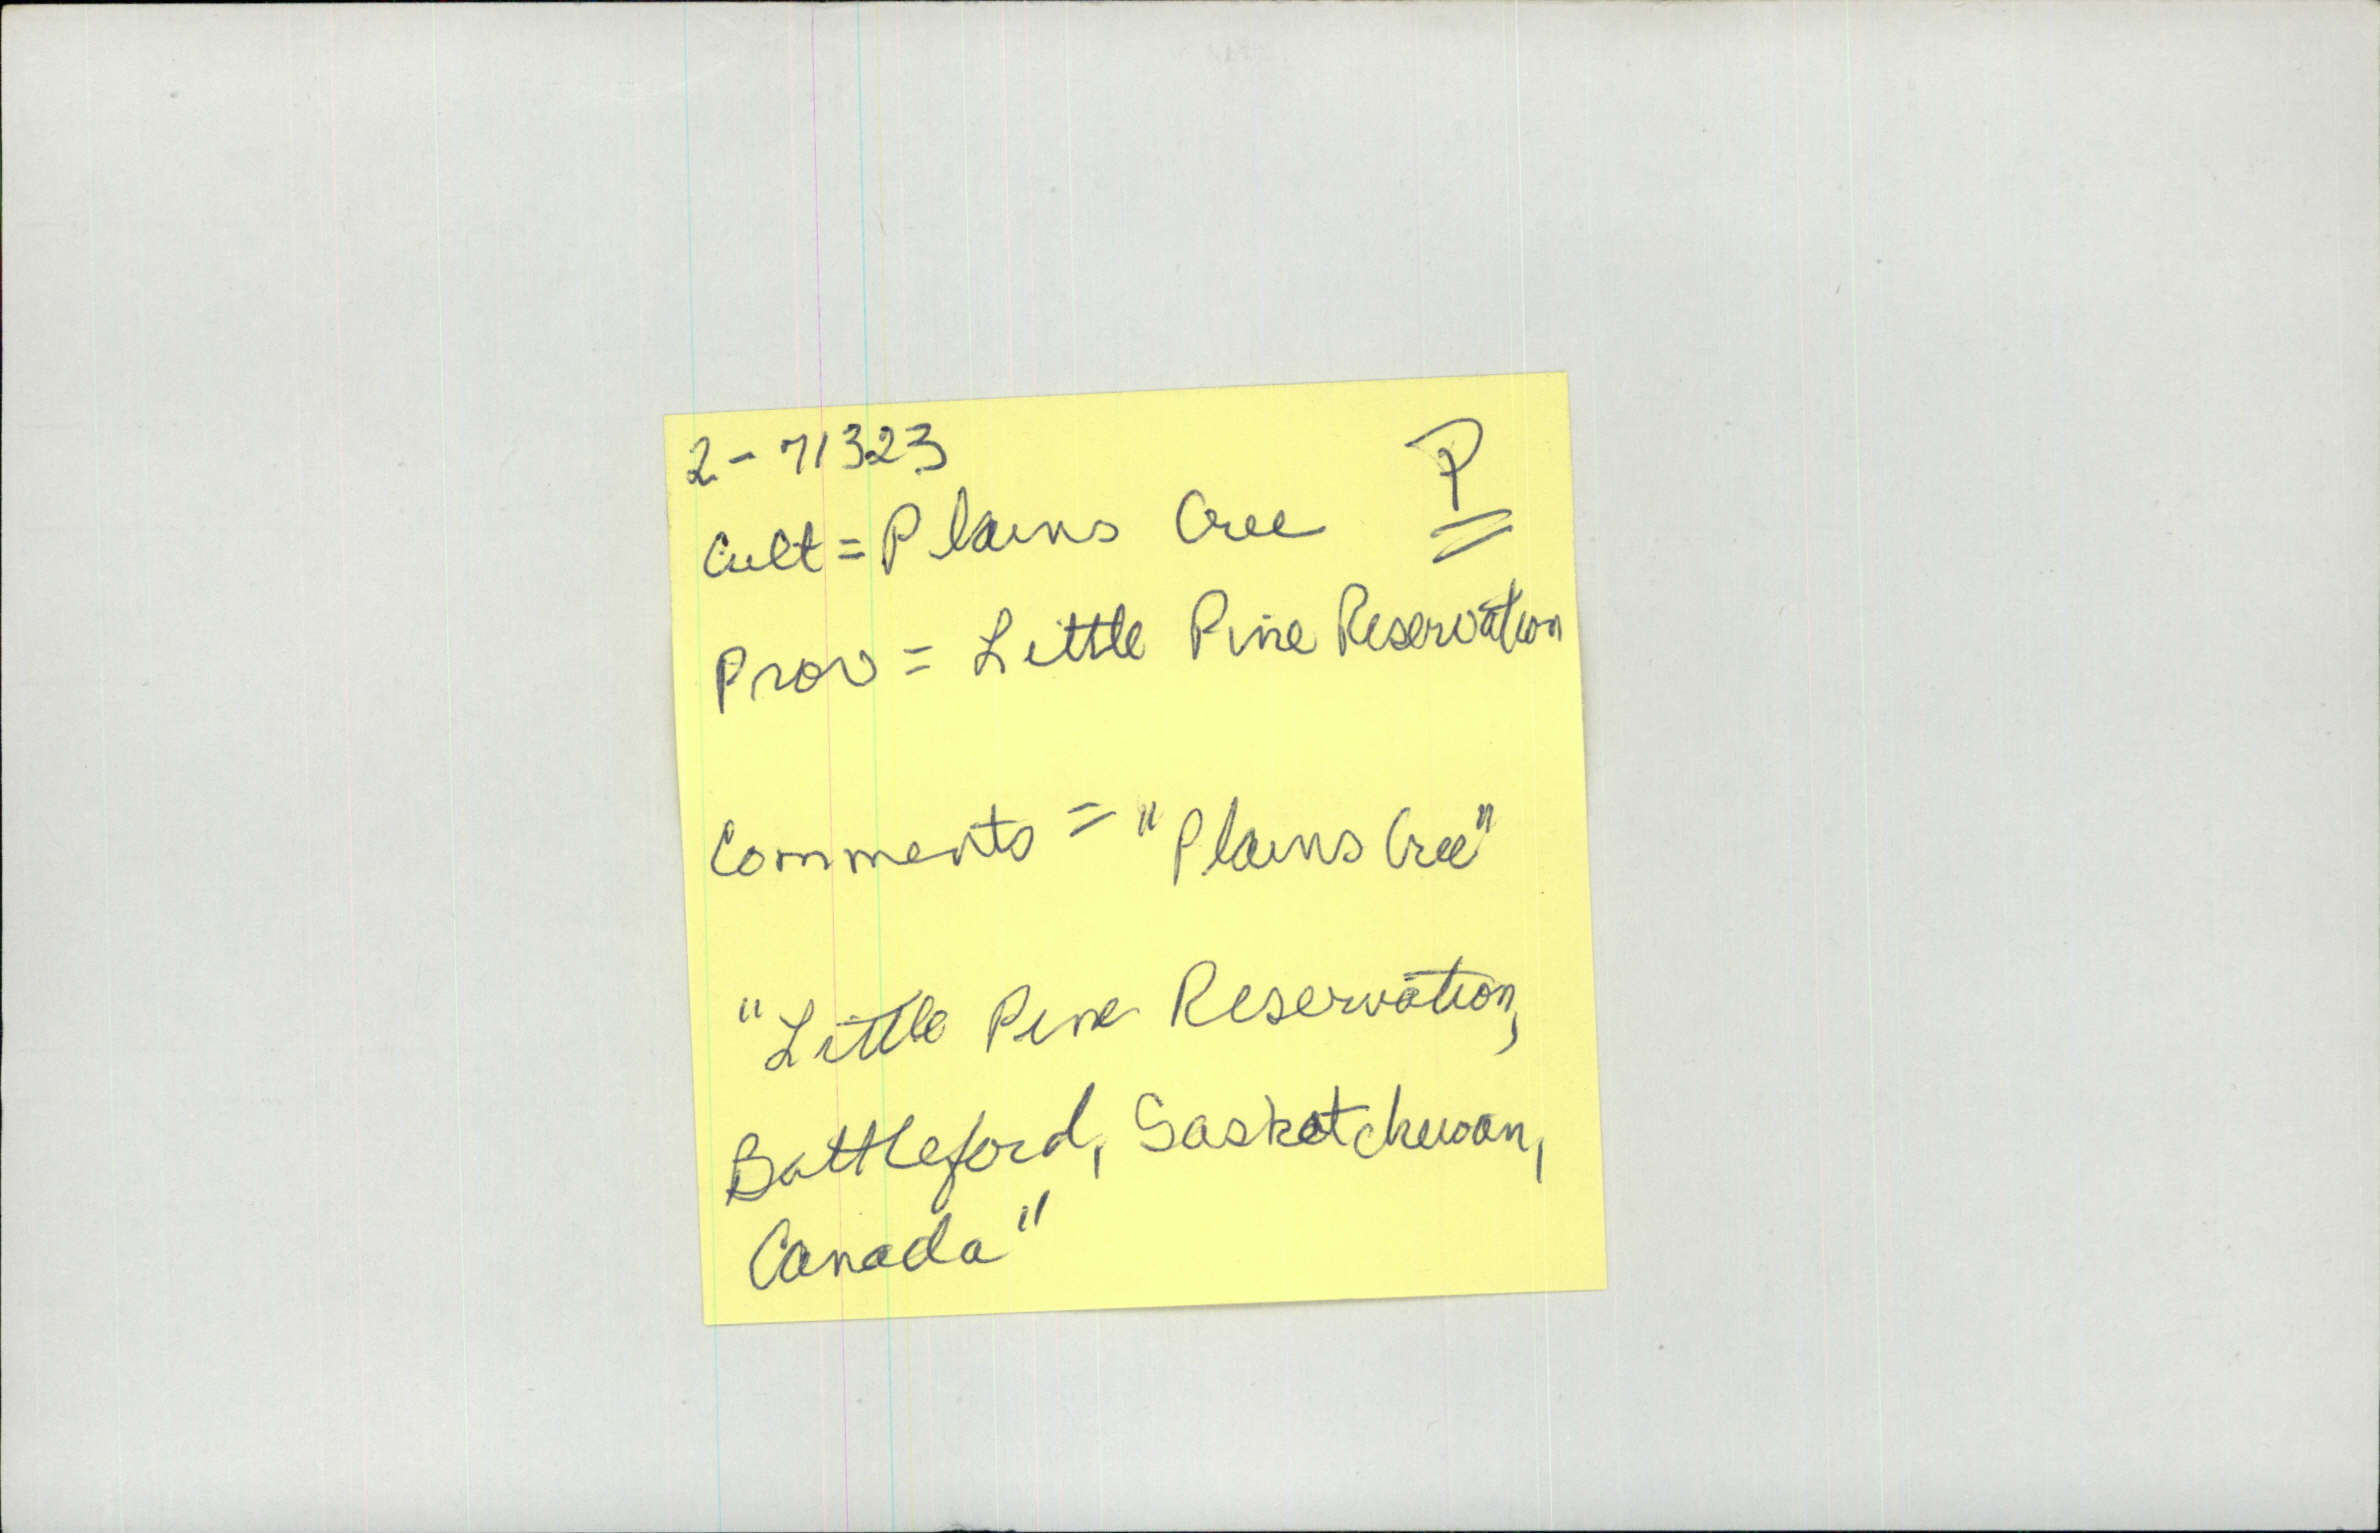 2-71323
P
Cult = Plains Cree
Prov = Little Pine Reservation
Comments = "Plains Cree"
"Little Pine Reservation,
Battleford, Saskatchewan,
Canada"